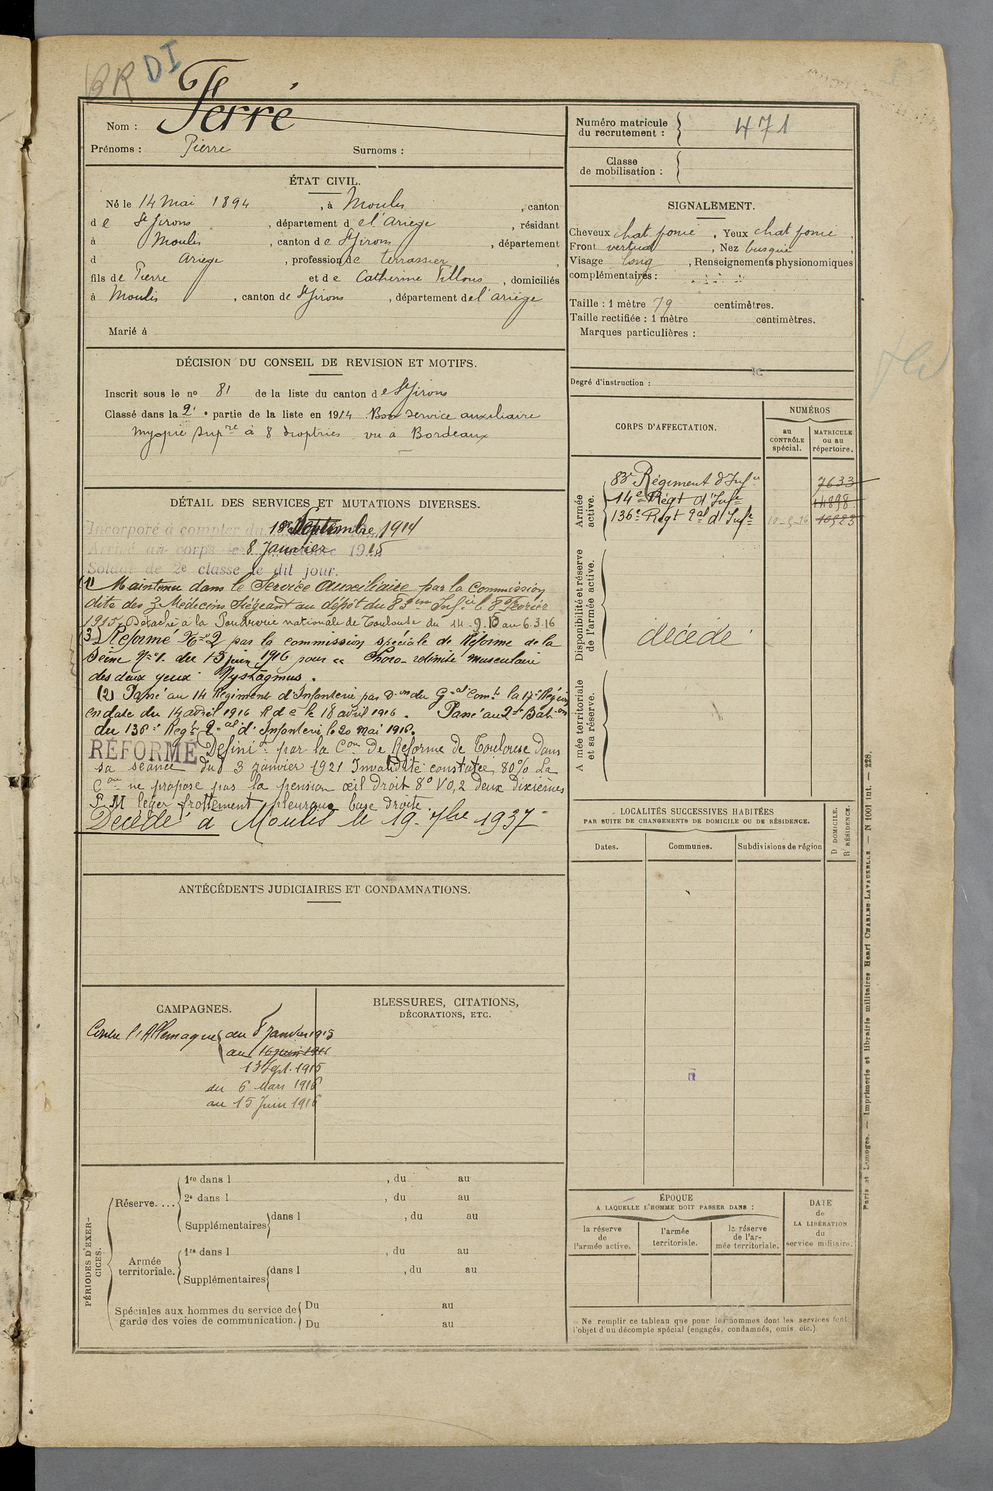 BR DI
Nom : Ferré
Prénoms : Pierre Surnoms :
Numéro matricule du recrutement : 471
Classe de mobilisation :
ÉTAT CIVIL.
Né le 14 Mai 1894, à Moulis, canton
de St Girons, département de l'Ariège, résidant
à Moulis, canton de St Girons, département
d Ariège, profession de terrassier,
fils de Pierre et de Catherine Tillous, domiciliés
à Moulis, canton de St Girons, département de l'Ariège
Marié à
SIGNALEMENT.
Cheveux chat. foncé, Yeux chat foncé,
Front vertical, Nez busqué
Visage long, Renseignements physionomiques
complémentaires :
Taille : 1 mètre 79 centimètres.
Taille rectifiée : 1 mètre centimètres.
Marques particulières :
Degré d'instruction :
DÉCISION DU CONSEIL DE REVISION ET MOTIFS.
Inscrit sous le no 81 de la liste du canton de St Girons
Classé dans la 2e partie de la liste en 1914 Bon service auxiliaire
myopie supre à 8 dioptries vu à Bordeaux
CORPS D'AFFECTATION.
NUMÉROS
au CONTRÔLE spécial.
MATRICULE ou au répertoire.
Armée active.
83e Régiment d'Infie 7633
14e Régt d'Infie 14898
136e Régt d'Infie
Disponibilité et réserve de l'armée active.
décédé
Armée territoriale et sa réserve.
DÉTAIL DES SERVICES ET MUTATIONS DIVERSES.
Incorporé à compter du Septembre 1914
Arrivé au corps le 8 Janvier 1915
Soldat de 2e classe le dit jour.
(1) Maintenu dans le Service auxiliaire par la Commission
dite des 3 Médecins siégeant au dépôt du 83eme Infie le 8 Février
1915. Détaché à la Poudrerie nationale de Toulouse du 14.9.15 au 6.3.16
(3) Réformé No 2 par la commission spéciale de Réforme de la
Seine No 1. du 15 juin 1916 pour " Choro-rétinite musculaire
des deux yeux. Nystagmus.
(2) Passé au 14 Régiment d'Infanterie par Don du Gal Comt la 17e Région
en date du 14 avril 1916 R d C le 18 avril 1916. Passé au 2e Baton
du 136e Regt d'Infanterie le 20 mai 1916.
RÉFORMÉ Définit. par la Con De Réforme de Toulouse dans
sa séance du 3 janvier 1921 Invalidité constatée 80% La
Con ne propose pas la pension œil droit 8° V 0,2 deux dixièmes
P.M léger frottement pleuraux base droite.
Décédé à Moulis le 19 7bre 1937
LOCALITÉS SUCCESSIVES HABITÉES
PAR SUITE DE CHANGEMENTS DE DOMICILE OU DE RÉSIDENCE.
Dates. Communes. Subdivisions de région
D DOMICILE. R RÉSIDENCE.
ANTÉCÉDENTS JUDICIAIRES ET CONDAMNATIONS.
CAMPAGNES.
Contre l'Allemagne du 8 janvier 1915
au 15 juin 1916
13 Sept. 1915
du 6 Mars 1916
au 15 Juin 1916
BLESSURES, CITATIONS,
DÉCORATIONS, ETC.
PÉRIODES D'EXERCICES.
Réserve....
1re dans l , du au
2e dans l , du au
Supplémentaires dans l , du au
Armée territoriale.
1re dans l , du au
Supplémentaires dans l , du au
Spéciales aux hommes du service de garde des voies de communication.
Du au
Du au
ÉPOQUE
A LAQUELLE L'HOMME DOIT PASSER DANS :
la réserve de l'armée active.
l'armée territoriale.
la réserve de l'armée territoriale.
DATE de LA LIBÉRATION du service militaire.
Ne remplir ce tableau que pour les hommes dont les services font
l'objet d'un décompte spécial (engagés, condamnés, omis etc.)
Paris et Limoges. — Imprimerie et librairie militaires Henri CHARLES-LAVAUZELLE. — N 1001 int. — 228.